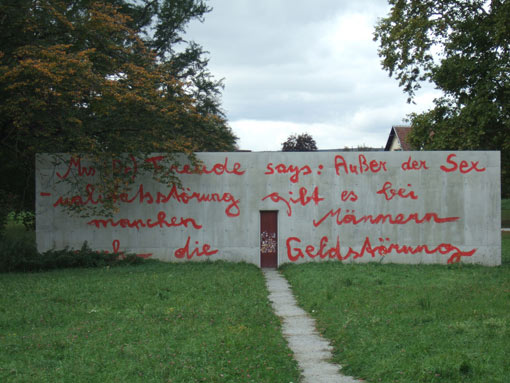 Freude says: Außer der Sex
-ualitätsstörung gibt es bei
manchen Männern
die Geldstörung